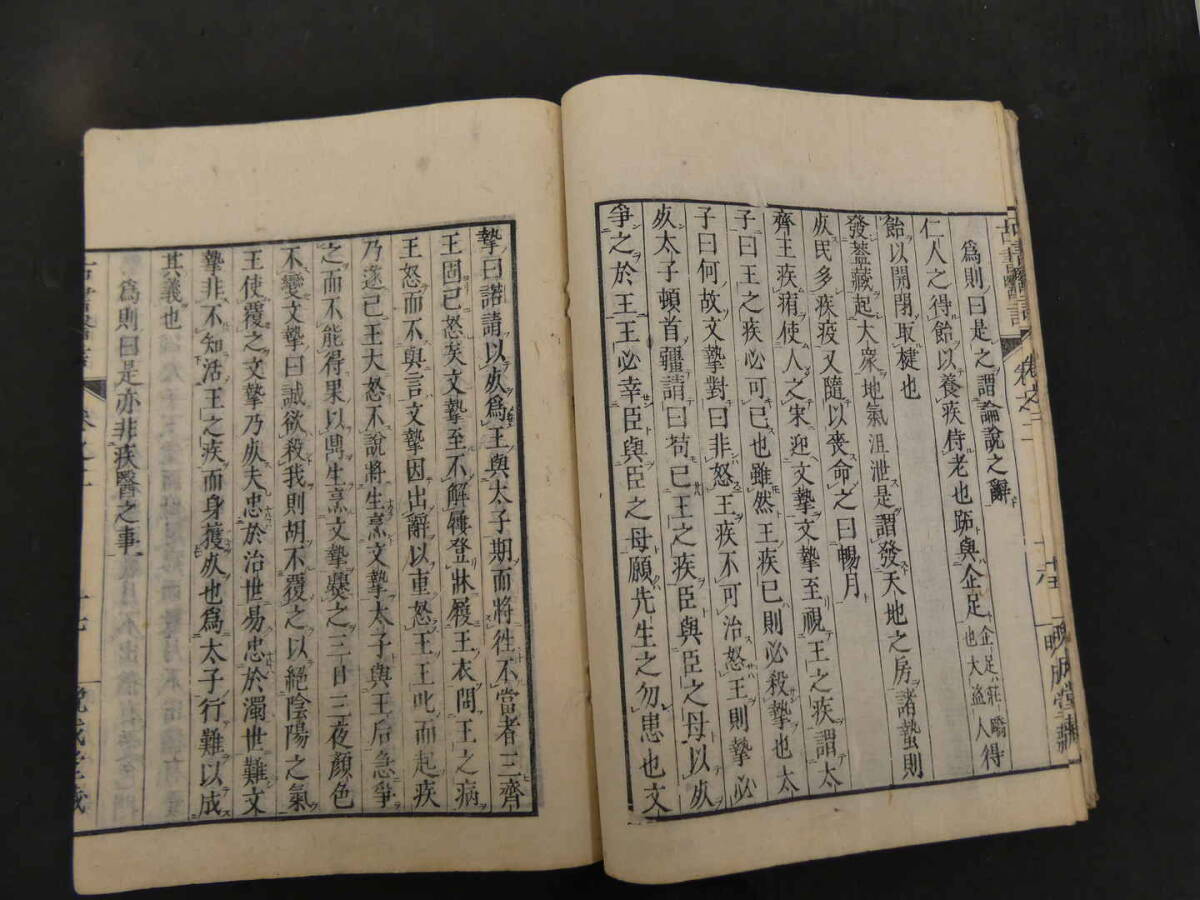 古書醫言 卷之二 十六 晚成堂藏
爲則曰是之謂論說之辭
仁人之得飴以養疾侍老也跖與企足 企足ハ莊蹻也大盜人 得
飴以開閉取楗也
發蓋藏起大衆地氣沮泄是謂發天地之房諸蟄則
死民多疾疫又隨以喪命之曰暢月
齊王疾痏使人之宋迎文摯文摯至視王之疾謂太
子曰王之疾必可已也雖然王疾已則必殺摯也太
子曰何故文摯對曰非怒王疾不可治怒王則摯必
死太子頓首疆請曰苟已王之疾臣與臣之母以死
爭之於王王必幸臣與臣之母願先生之勿患也文
摯曰諾請以死爲王與太子期而將往不當者三齊
王固已怒矣文摯至不解屨登牀履王衣問王之病
王怒而不與言文摯因出辭以重怒王王叱而起疾
乃遂已王大怒不說將生烹文摯太子與王后急爭
之而不能得果以鼎生烹文摯爨之三日三夜顏色
不變文摯曰誠欲殺我則胡不覆之以絕陰陽之氣
王使覆之文摯乃死夫忠於治世易忠於濁世難文
摯非不知活王之疾而身獲死也爲太子行難以成
其義也
爲則曰是亦非疾醫之事
古書醫言 卷之二 十七 晚成堂藏